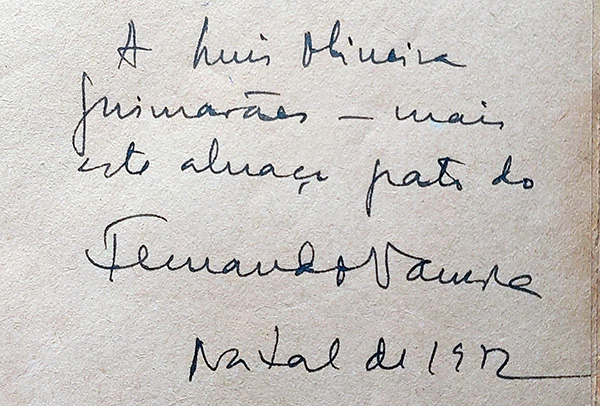 A Luis Oliveira
Guimarães — mais
este abraço grato do
Fernando Namora
Natal de 1972